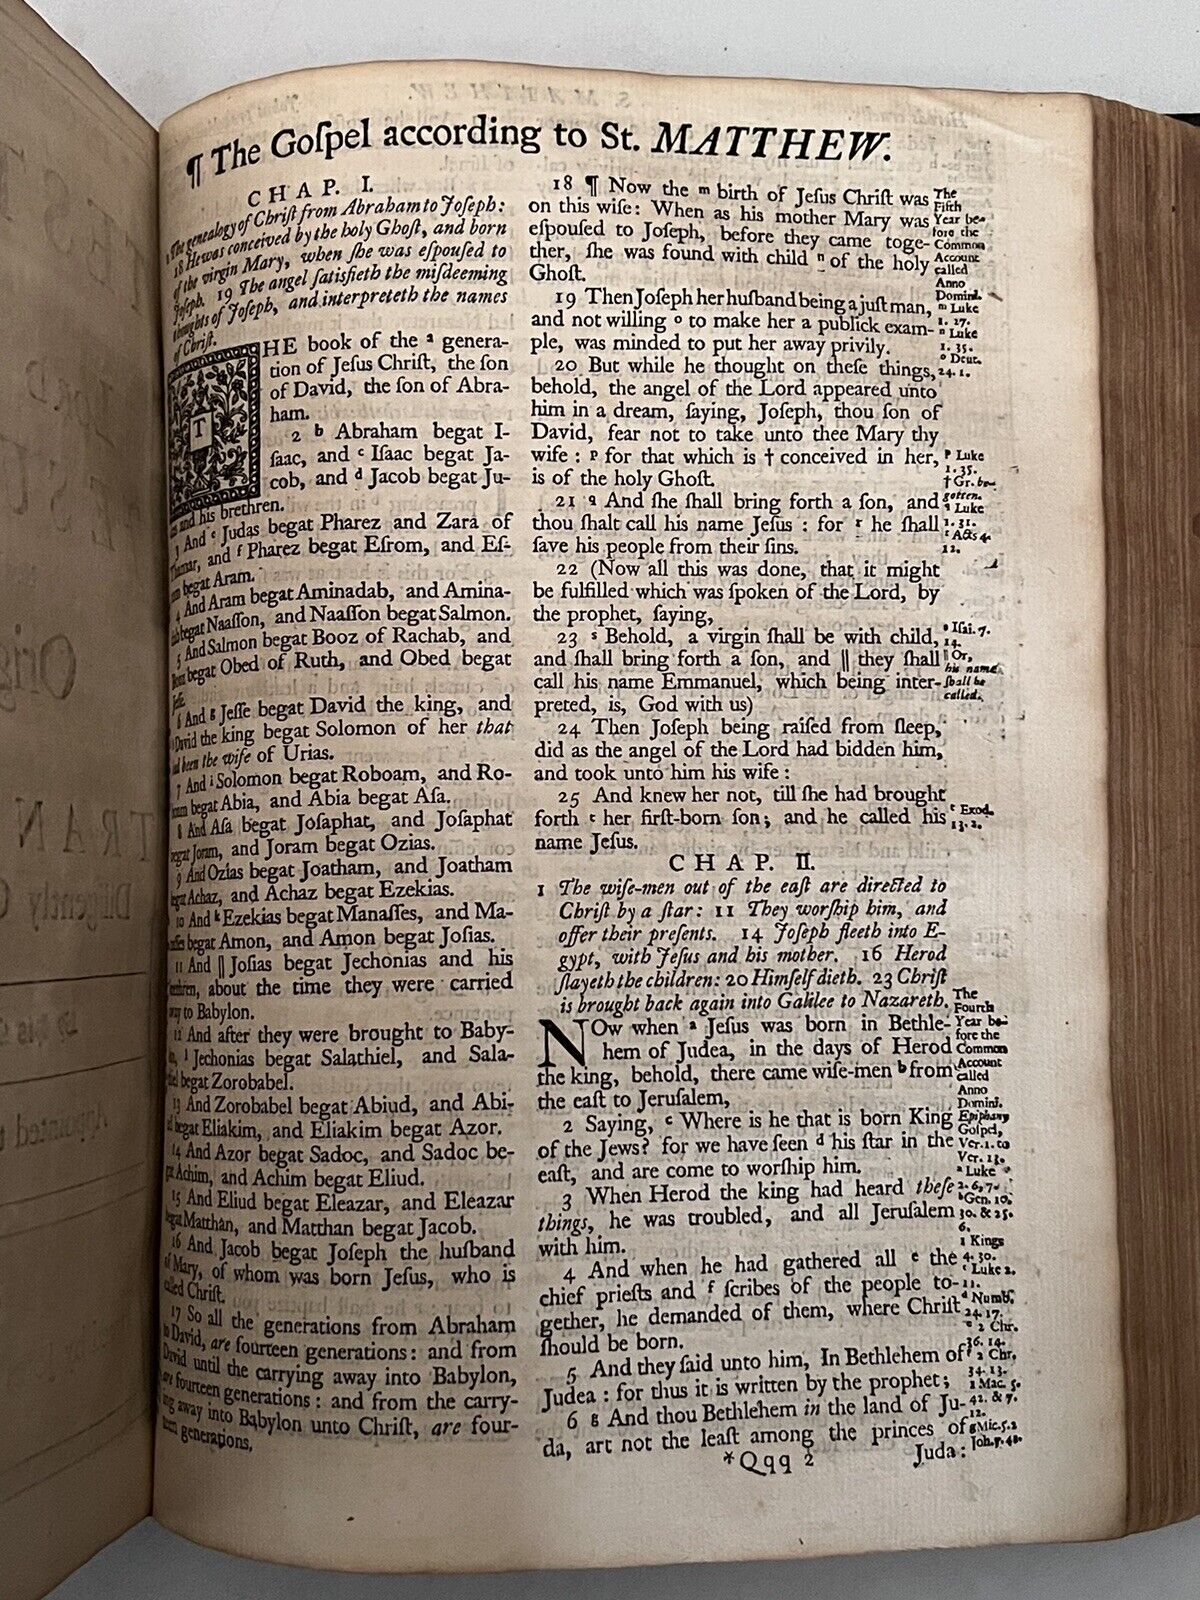 ¶ The Goſpel according to St. MATTHEW.
CHAP. I.
1 The genealogy of Chriſt from Abraham to Joſeph:
18 He was conceived by the holy Ghoſt, and born
of the virgin Mary, when ſhe was eſpouſed to
Joſeph. 19 The angel ſatisfieth the miſdeeming
thoughts of Joſeph, and interpreteth the names
of Chriſt.
THE book of the a genera-
tion of Jeſus Chriſt, the ſon
of David, the ſon of Abra-
ham.
2 b Abraham begat I-
ſaac, and c Iſaac begat Ja-
cob, and d Jacob begat Ju-
das and his brethren.
3 And e Judas begat Pharez and Zara of
Thamar, and f Pharez begat Eſrom, and Eſ-
rom begat Aram.
4 And Aram begat Aminadab, and Amina-
dab begat Naaſſon, and Naaſſon begat Salmon.
5 And Salmon begat Booz of Rachab, and
Booz begat Obed of Ruth, and Obed begat
Jeſſe.
6 And g Jeſſe begat David the king, and
David the king begat Solomon of her that
had been the wife of Urias.
7 And i Solomon begat Roboam, and Ro-
boam begat Abia, and Abia begat Aſa.
8 And Aſa begat Joſaphat, and Joſaphat
begat Joram, and Joram begat Ozias.
9 And Ozias begat Joatham, and Joatham
begat Achaz, and Achaz begat Ezekias.
10 And k Ezekias begat Manaſſes, and Ma-
naſſes begat Amon, and Amon begat Joſias.
11 And || Joſias begat Jechonias and his
brethren, about the time they were carried
away to Babylon.
12 And after they were brought to Baby-
lon, l Jechonias begat Salathiel, and Sala-
thiel begat Zorobabel.
13 And Zorobabel begat Abiud, and Abi-
ud begat Eliakim, and Eliakim begat Azor.
14 And Azor begat Sadoc, and Sadoc be-
gat Achim, and Achim begat Eliud.
15 And Eliud begat Eleazar, and Eleazar
begat Matthan, and Matthan begat Jacob.
16 And Jacob begat Joſeph the huſband
of Mary, of whom was born Jeſus, who is
called Chriſt.
17 So all the generations from Abraham
to David, are fourteen generations: and from
David until the carrying away into Babylon,
are fourteen generations: and from the carry-
ing away into Babylon unto Chriſt, are four-
teen generations,
18 ¶ Now the m birth of Jeſus Chriſt was
on this wiſe: When as his mother Mary was
eſpouſed to Joſeph, before they came toge-
ther, ſhe was found with child n of the holy
Ghoſt.
19 Then Joſeph her huſband being a juſt man,
and not willing o to make her a publick exam-
ple, was minded to put her away privily.
20 But while he thought on theſe things,
behold, the angel of the Lord appeared unto
him in a dream, ſaying, Joſeph, thou ſon of
David, fear not to take unto thee Mary thy
wife : p for that which is † conceived in her,
is of the holy Ghoſt.
21 q And ſhe ſhall bring forth a ſon, and
thou ſhalt call his name Jeſus : for r he ſhall
ſave his people from their ſins.
22 (Now all this was done, that it might
be fulfilled which was ſpoken of the Lord, by
the prophet, ſaying,
23 s Behold, a virgin ſhall be with child,
and ſhall bring forth a ſon, and || they ſhall
call his name Emmanuel, which being inter-
preted, is, God with us)
24 Then Joſeph being raiſed from ſleep,
did as the angel of the Lord had bidden him,
and took unto him his wife :
25 And knew her not, till ſhe had brought
forth t her firſt-born ſon; and he called his
name Jeſus.
CHAP. II.
1 The wiſe-men out of the eaſt are directed to
Chriſt by a ſtar: 11 They worſhip him, and
offer their preſents. 14 Joſeph fleeth into E-
gypt, with Jeſus and his mother. 16 Herod
ſlayeth the children: 20 Himſelf dieth. 23 Chriſt
is brought back again into Galilee to Nazareth.
NOw when a Jeſus was born in Bethle-
hem of Judea, in the days of Herod
the king, behold, there came wiſe-men b from
the eaſt to Jeruſalem,
2 Saying, c Where is he that is born King
of the Jews? for we have ſeen d his ſtar in the
eaſt, and are come to worſhip him.
3 When Herod the king had heard theſe
things, he was troubled, and all Jeruſalem
with him.
4 And when he had gathered all e the
chief prieſts and f ſcribes of the people to-
gether, he demanded of them, where Chriſt
ſhould be born.
5 And they ſaid unto him, In Bethlehem of
Judea : for thus it is written by the prophet;
6 g And thou Bethlehem in the land of Ju-
da, art not the leaſt among the princes of
*Qqq 2
Juda:
The
Fifth
Year be-
fore the
Common
Account
called
Anno
Domini.
m Luke
1. 27.
n Luke
1. 35.
o Deut.
24. 1.
p Luke
1. 35.
† Gr. be-
gotten.
q Luke
1. 31.
r Acts 4.
12.
s Iſai. 7.
14.
|| Or,
his name
ſhall be
called.
t Exod.
13. 2.
The
Fourth
Year be-
fore the
Common
Account
called
Anno
Domini.
Epiphany
Goſpel,
Ver. 1. to
Ver. 13.
a Luke
2. 6, 7.
b Gen. 10.
30. & 25.
6.
1 Kings
4. 30.
c Luke 2.
11.
d Numb.
24. 17.
e 2 Chr.
36. 14.
f 2 Chr.
34. 13.
1 Mac. 5.
42. & 7.
12.
g Mic. 5. 2
Joh. 7. 42.